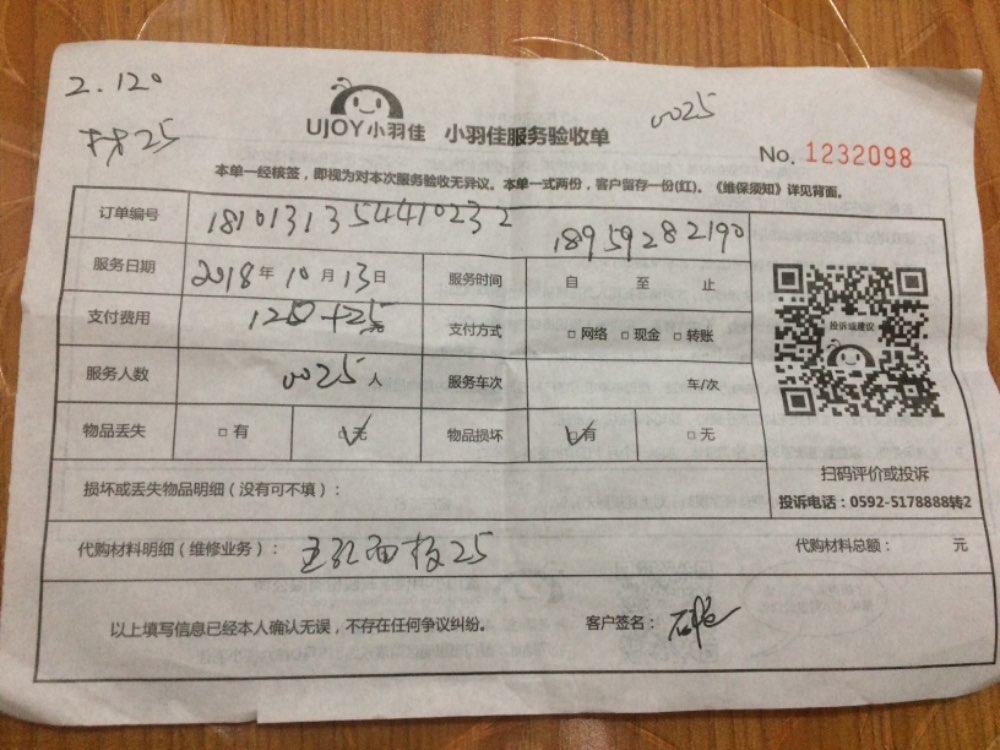 2.120
材25
0025
UJOY小羽佳 小羽佳服务验收单
No. 1232098
本单一经核签，即视为对本次服务验收无异议。本单一式两份，客户留存一份(红)。《维保须知》详见背面。
订单编号 181013135441023 2 18959282190
服务日期 2018年10月13日 服务时间 自 至 止
支付费用 120+25元 支付方式 □网络 □现金 □转账
服务人数 0025人 服务车次 车/次
物品丢失 □有 □无 物品损坏 □有 □无
投诉或建议
扫码评价或投诉
投诉电话：0592-5178888转2
损坏或丢失物品明细（没有可不填）：
代购材料明细（维修业务）： 五孔面板25 代购材料总额： 元
以上填写信息已经本人确认无误，不存在任何争议纠纷。 客户签名：